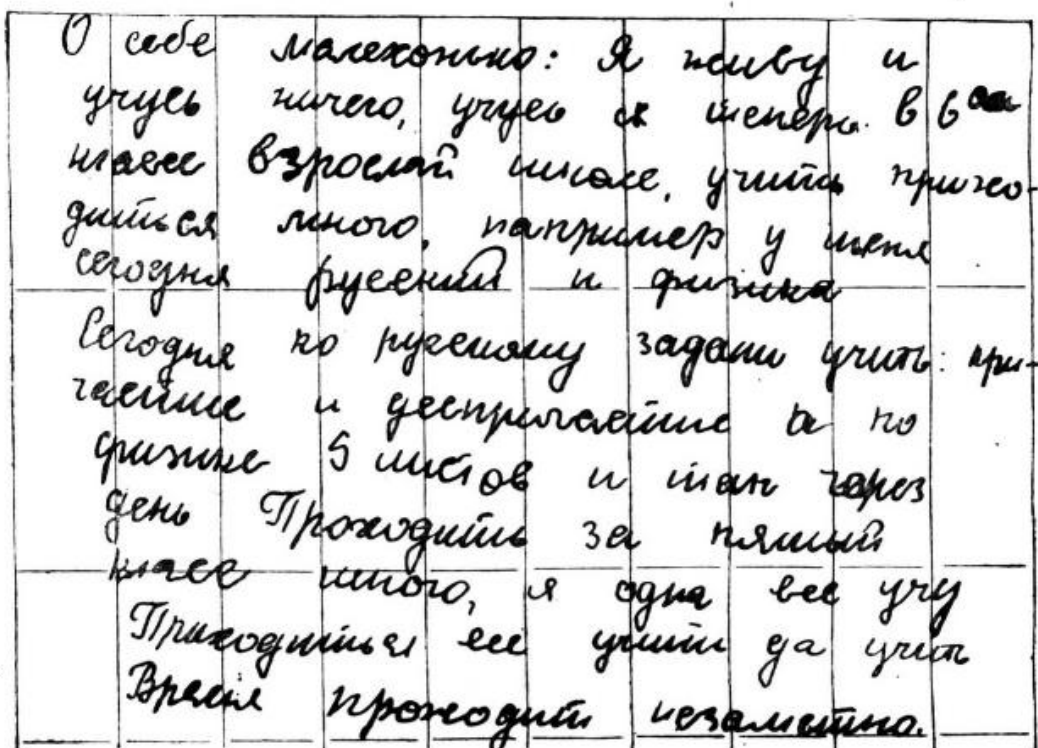 О себе малехонько: Я живу и
учусь ничего, учусь я теперь в 6ом
классе взрослой школе, учить прихо-
диться много, например у меня
сегодня русский и физика
Сегодня по русскому задали учить: при-
частие и деепричастие а по
физике 5 листов и так через
день Проходить за пятый
класс много, я одна все учу
Приходиться все учить да учить
Время проходит незаметно.